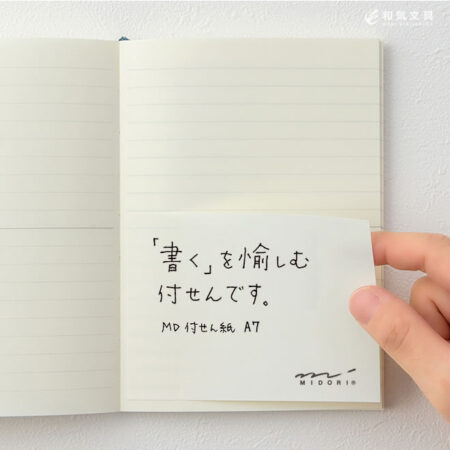 和気文具
「書く」を愉しむ
付せんです。
MD 付せん紙 A7
MIDORI®